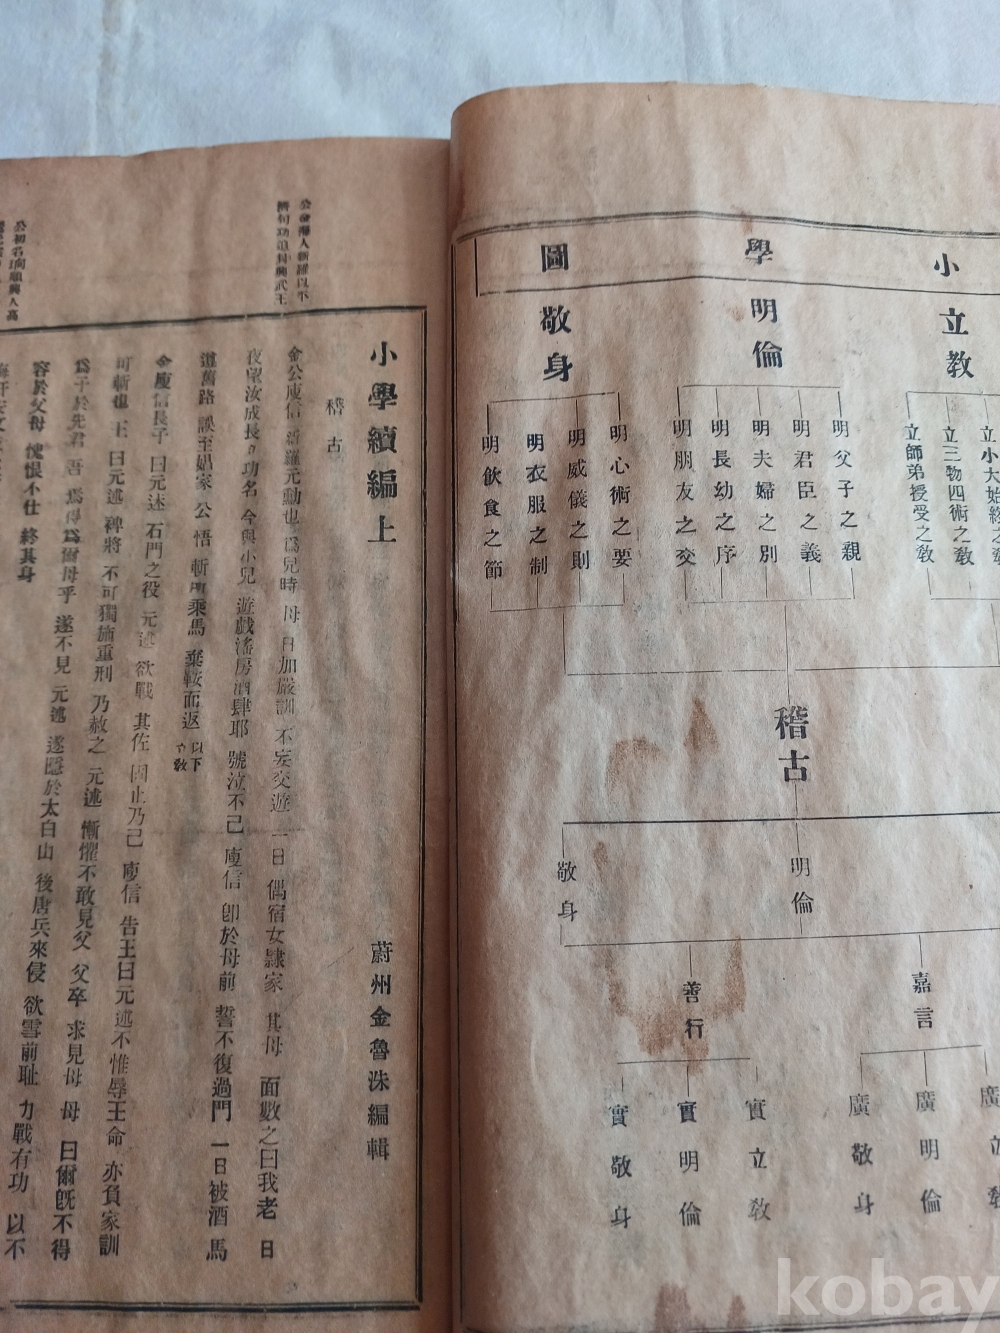 小學圖
立教
明倫
敬身
立小大始終之教
立三物四術之教
立師弟授受之教
明父子之親
明君臣之義
明夫婦之別
明長幼之序
明朋友之交
明心術之要
明威儀之則
明衣服之制
明飲食之節
稽古
明倫
敬身
嘉言
善行
廣立教
廣明倫
廣敬身
實立教
實明倫
實敬身
小學續編上
蔚州金魯洙編輯
稽古
金公庾信 新羅元勳也 爲兒時 母 日加嚴訓 不妄交遊 一日 偶宿女隷家 其母 面數之曰我老 日
夜望汝成長 功名 今與小兒 遊戲滛房酒肆耶 號泣不己 庾信 卽於母前 誓不復過門 一日被酒 馬
遵舊路 誤至娼家 公 悟 斬所乘馬 棄鞍而返 以下立敎
金庾信長子 曰元述 石門之役 元述 欲戰 其佐 固止乃己 庾信 告王曰元述不惟辱王命 亦負家訓
可斬也 王 曰元述 裨將 不可獨施重刑 乃赦之 元述 慚懼不敢見父 父卒 求見母 母 曰爾旣不得
爲子於先君 吾 焉得爲爾母乎 遂不見 元述 遂隱於太白山 後唐兵來侵 欲雪前耻 力戰有功 以不
容於父母 愧恨不仕 終其身
kobay